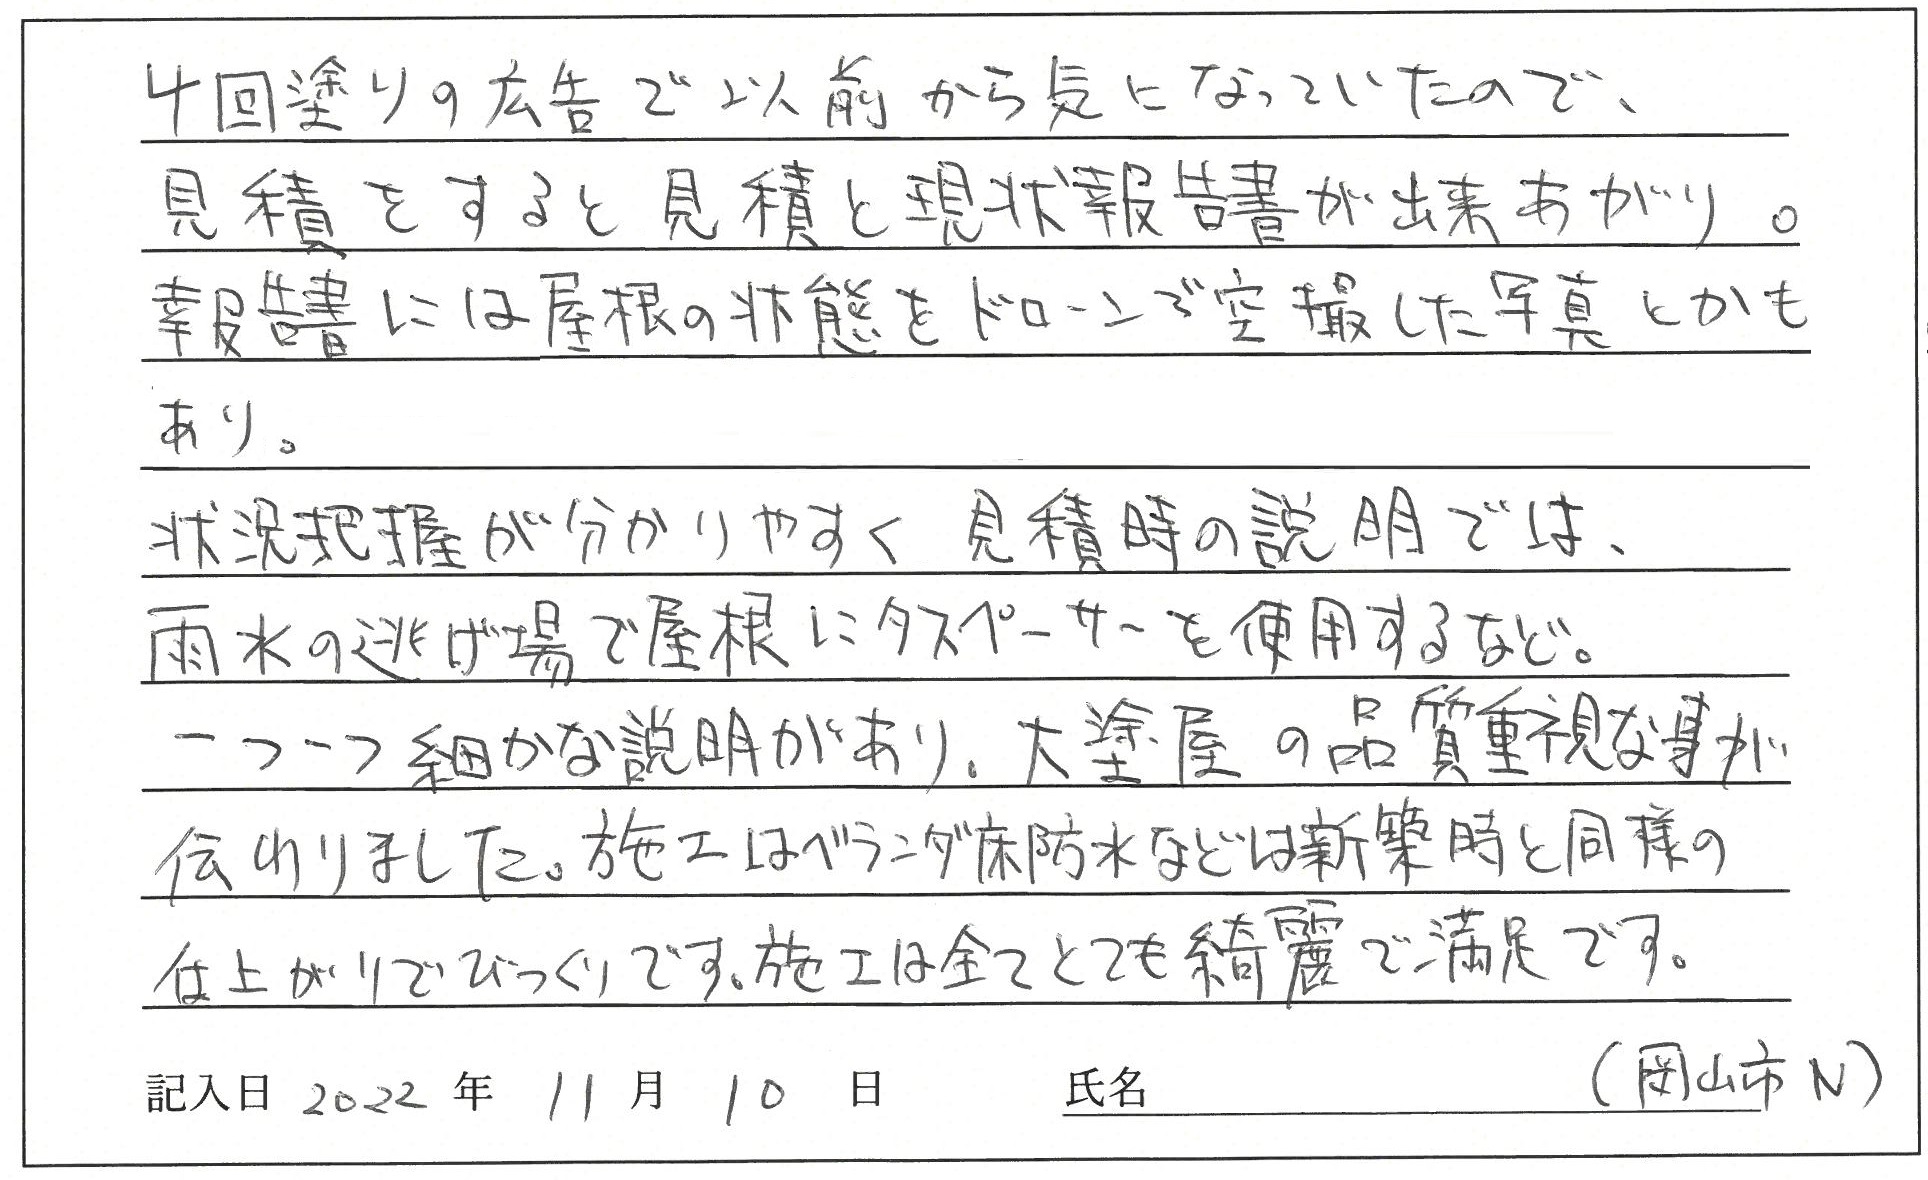 4回塗りの広告で以前から気になっていたので、
見積をすると見積と現状報告書が出来あがり。
報告書には屋根の状態をドローンで空撮した写真とかも
あり。
状況把握が分かりやすく見積時の説明では、
雨水の逃げ場で屋根にタスペーサーを使用するなど。
一つ一つ細かな説明があり、大塗屋の品質重視な事が
伝わりました。施工はベランダ床防水などは新築時と同様の
仕上がりでびっくりです。施工は全てとても綺麗で満足です。
記入日 2022 年 11 月 10 日 氏名 (岡山市 N)